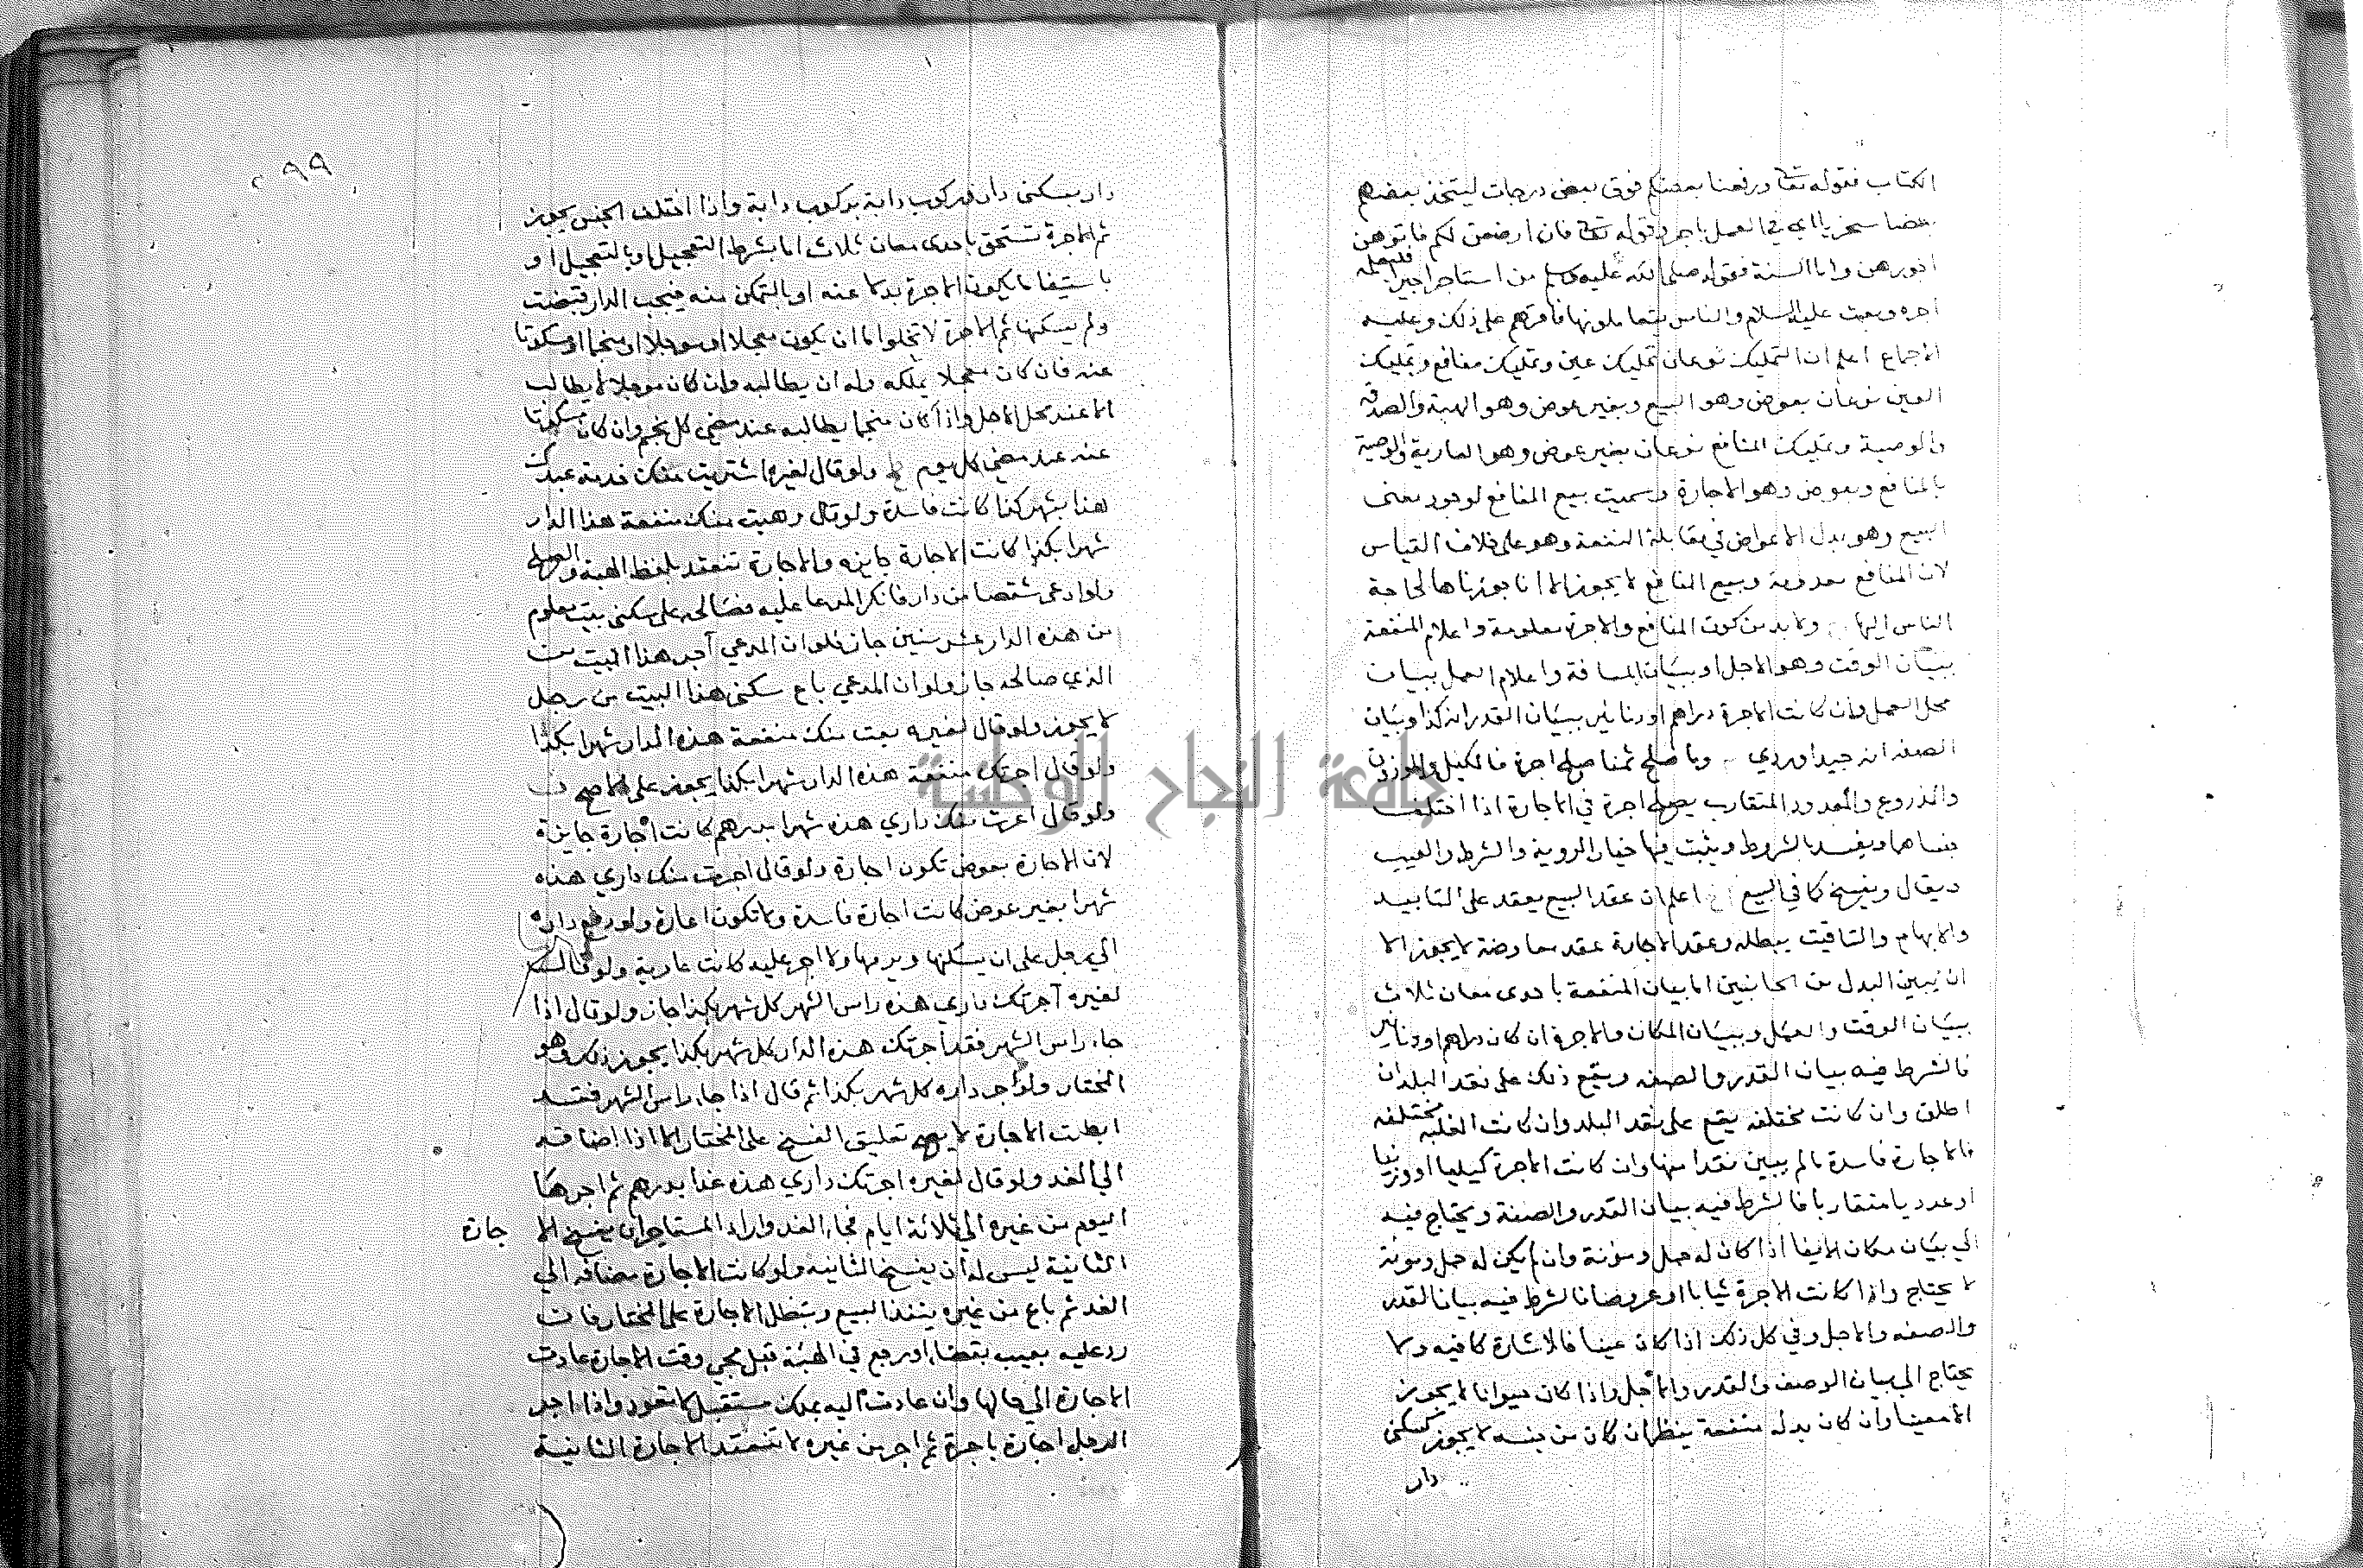 الكتاب فقوله تعا ورفعنا بعضكم فوق بعض درجات ليتخذ بعضهم
بعضا سخريا اي في العمل باجر وقوله تعا فان ارضعن لكم فاتوهن
اجورهن واما السنة فقوله صلى الله عليه وسلم من استاجر اجيرا فليعلمه
اجره وبعث عليه السلام والناس يتعاملونها فاقرهم على ذلك وعليه
الاجماع اعلم ان التمليك نوعان تمليك عين وتمليك منافع وتمليك
العين نوعان بعوض وهو البيع وبغير عوض وهو الهبة والصدقه
والوصية وتمليك المنافع نوعان بغير عوض وهو العارية والوصية
بالمنافع وبعوض وهو الاجارة وسميت بيع المنافع لوجود معنى
البيع وهو بدل الاعواض في مقابلة المنفعة وهو على خلاف القياس
لان المنافع معدومة وبيع المنافع لا يجوز الا انا جوزناها لحاجة
الناس اليها ولا بد من كون المنافع والاجرة معلومة واعلام المنفعة
ببيان الوقت وهو الاجل او ببيان المسافة واعلام العمل ببيان
محل العمل وان كانت الاجرة دراهم او دنانير ببيان القدر انه كذا وبيان
الصفه انه جيد او ردي وما صلح ثمنا صلح اجرة فالمكيل والموزون
والمذروع والمعدود المتقارب يصلح اجرة في الاجارة اذا اختلف
جنساهما ويفسد بالشروط ويثبت فيها خيار الروية والشرط والعيب
ويقال ويفسخ كما في البيع اعلم ان عقد البيع يعقد على التابيد
والابهام والتاقيت يبطله وعقد الاجارة عقد معاوضة لا يجوز الا
ان يبين البدل من الجانبين اما بيان المنفعة باحدى معان ثلاث
ببيان الوقت والعمل وببيان المكان والاجرة ان كان دراهم او دنانير
فالشرط فيه بيان القدر والصفه ويقع ذلك على نقد البلد ان
اطلق وان كانت مختلفه يقع على نقد البلد وان كانت الغلبه مختلفه
فالاجارة فاسدة مالم يبين نقدا منها وان كانت الاجرة كيليا او وزنيا
او عدديا متقاربا فالشرط فيه بيان القدر والصفة ويحتاج فيه
الي بيان مكان الايفا اذا كان له حمل ومؤنة وان لم يكن له حمل ومونة
لا يحتاج واذا كانت الاجرة ثيابا او عروضا فالشرط فيه بيان القدر
والصفه والاجل وفي كل ذلك اذا كان عينا فالاشارة كافيه ولا
يحتاج الي بيان الوصف والقدر والاجل واذا كان حيوانا لا يجوز
الا معينا وان كان بدله منفعة ينظر ان كان من جنسه لا يجوز كسكنى
دار
٢٩٩
دار بسكنى دار وركوب دابة بركوب دابة واذا اختلف الجنس يجوز
ثم الاجرة تستحق باحدى معان ثلاث اما بشرط التعجيل او بالتعجيل او
باستيفا ما يكون الاجرة بدلا عنه او بالتمكن منه فيجب الدار قبضت
ولم يسكنها ثم الاجرة لا تخلوا اما ان يكون معجلا او موجلا او منجما او مسكوتا
عنه فان كان معجلا يملكه وله ان يطالبه وان كان موجلا لا يطالب
الا عند محل الاجل واذا كان منجما يطالبه عند مضي كل نجم وان كان مسكوتا
عنه عند مضي كل يوم ولو قال لغيره اشتريت منك خدمة عبدك
هذا بشهر كذا كانت فاسدة ولو قال وهبت منك منفعة هذا الدار
شهرا بكذا كانت الاجارة جايزه والاجارة تنعقد بلفظ الهبة والصلح
ولو ادعى شقصا من دار فانكر المدعا عليه فصالحه على سكنى بيت معلوم
من هذه الدار عشر سنين جاز فلو ان المدعي آجر هذا البيت من
الذي صالحه جاز ولو ان المدعي باع سكنى هذا البيت من رجل
لا يجوز ولو قال لغيره بعت منك منفعة هذه الدار شهرا بكذا
ولو قال اجرتك منفعة هذه الدار شهرا بكذا يجوز على الاصح
ولو قال اعرت منك داري هذه شهرا بدرهم كانت اجارة جايزة
لان الاجارة بعوض تكون اجارة ولو قال اجرت منك داري هذه
شهرا بغير عوض كانت اجارة فاسدة ولا تكون اعارة ولو دفع داره
الي رجل على ان يسكنها ويرمها ولا اجر عليه كانت عارية ولو قال
لغيره آجرتك داري هذه راس الشهر كل شهر بكذا جاز ولو قال اذا
جاء راس الشهر فقد آجرتك هذه الدار كل شهر بكذا يجوز ذلك وهو
المختار ولو آجر داره كل شهر بكذا ثم قال اذا جاء راس الشهر فقد
ابطلت الاجارة لا يصح تعليق الفسخ على المختار الا اذا اضافه
الي الغد ولو قال لغيره اجرتك داري هذه غدا بدرهم ثم اجرها
اليوم من غيره الي ثلاثة ايام فجاء الغد واراد المستاجر ان يفسخ الاجارة
الثانية ليس له ان يفسخ الثانيه ولو كانت الاجارة مضافه الي
الغد ثم باع من غيره ينفذ البيع وتبطل الاجارة على المختار فان
رد عليه بعيب بقضاء او رجع في الهبة قبل مجي وقت الاجارة عادت
الاجارة الي حالها وان عادت اليه بملك مستقبل لا تعود واذا اجر
الرجل اجارة باجرة ثم اجر من غيره لا تنعقد الاجارة الثانية
جامعة النجاح الوطنية